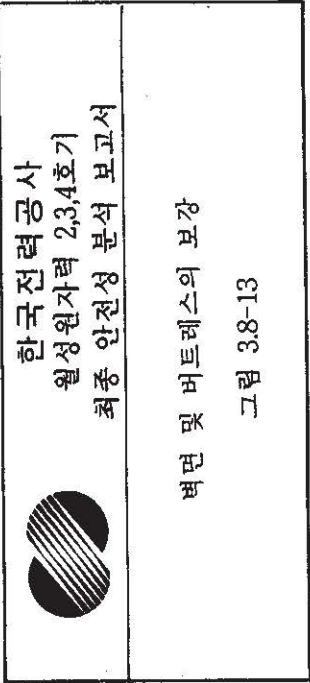 한국전력공사
월성원자력 2,3,4호기
최종 안전성 분석 보고서
벽면 및 버트레스의 보강
그림 3.8-13